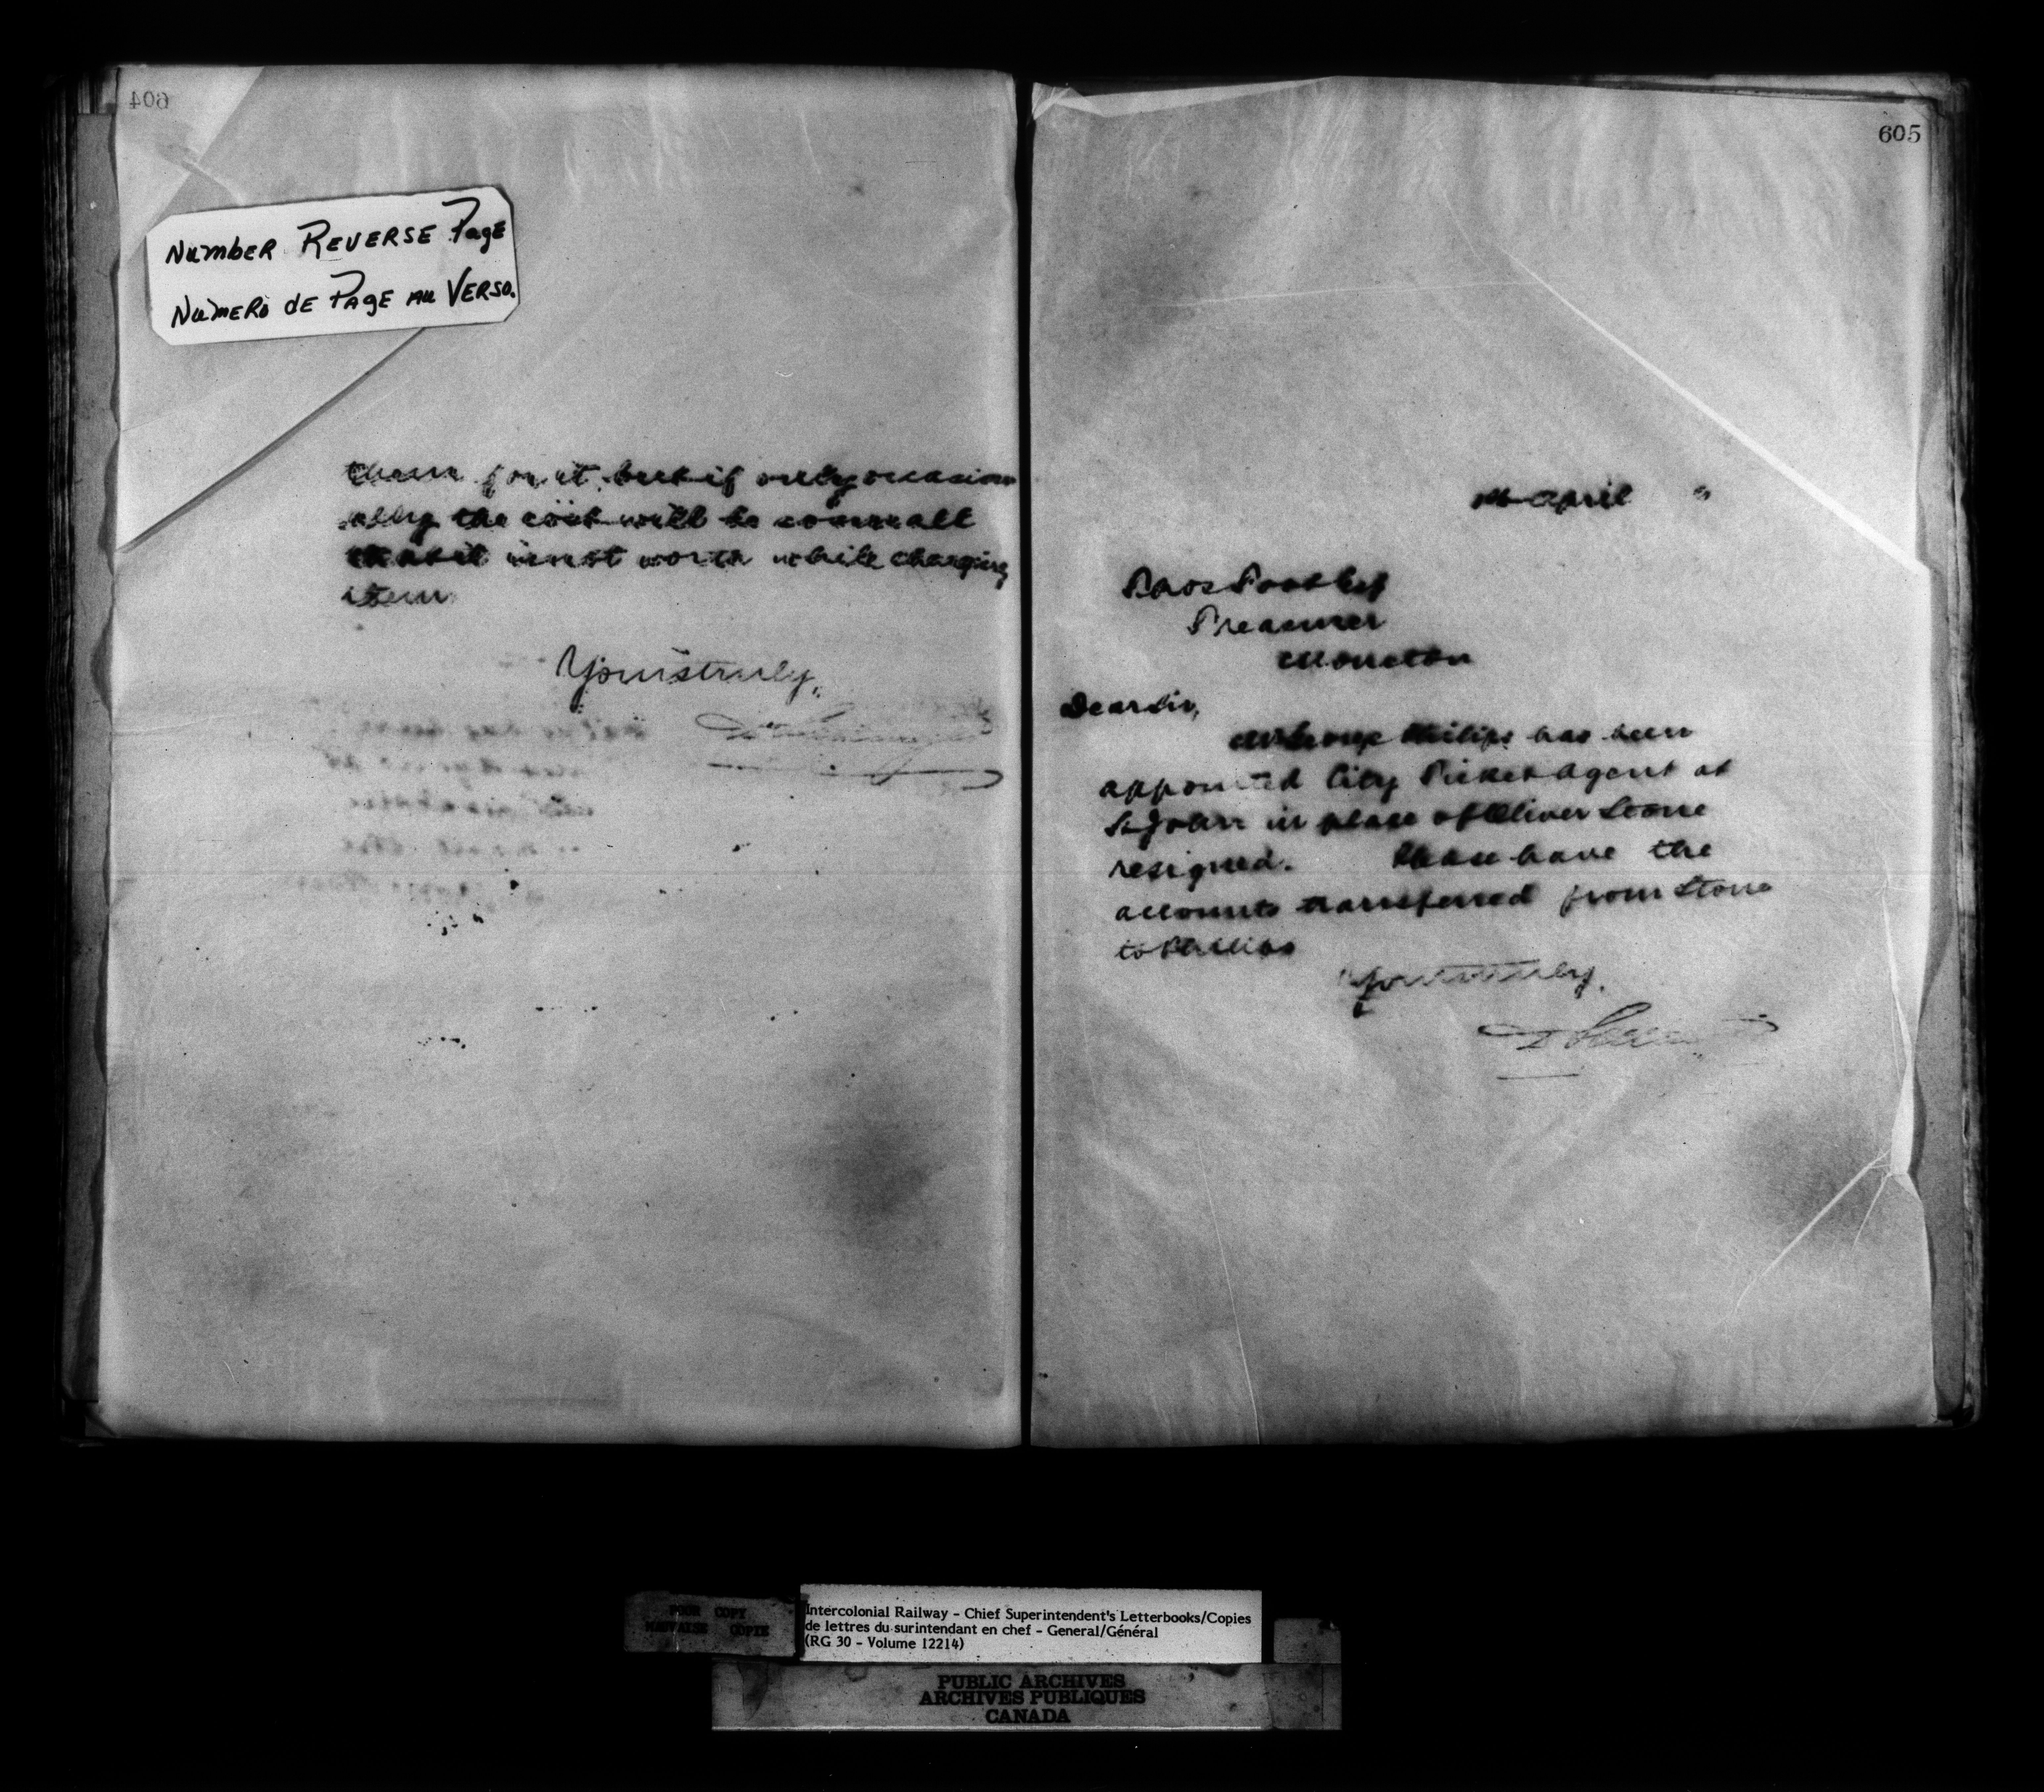 604
Number Reverse Page
Numero de Page au Verso.
them for it, but if only occasion
ally the cost will be so small
that it is not worth while charging
item
Yours truly,
605
1st April "
Thos Foot Esq
Treasurer
Moncton
Dear Sir,
George Philips has been
appointed City Ticket Agent at
St John in place of Oliver Stone
resigned. Please have the
accounts transferred from Stone
to Philips
Yours truly,
POOR COPY
MAUVAISE COPIE
Intercolonial Railway - Chief Superintendent's Letterbooks/Copies
de lettres du surintendant en chef - General/Général
(RG 30 - Volume 12214)
PUBLIC ARCHIVES
ARCHIVES PUBLIQUES
CANADA